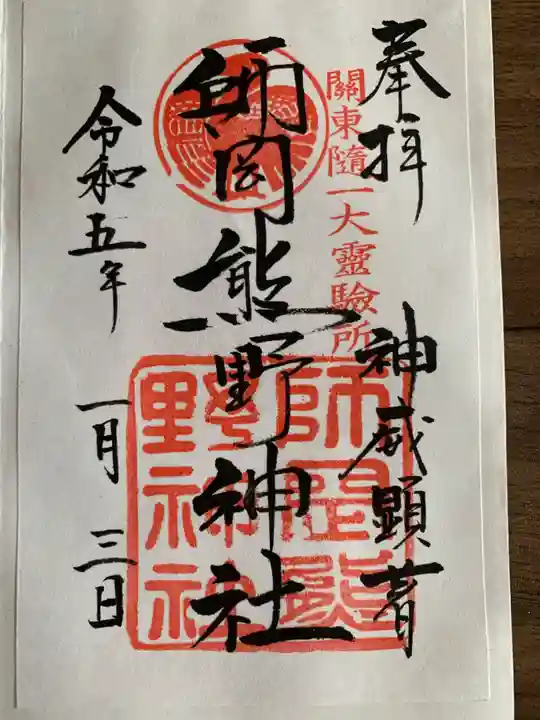 奉拝
神威顕著
關東隨一大靈驗所
師岡熊野神社
師岡熊野神社
令和五年
一月三日